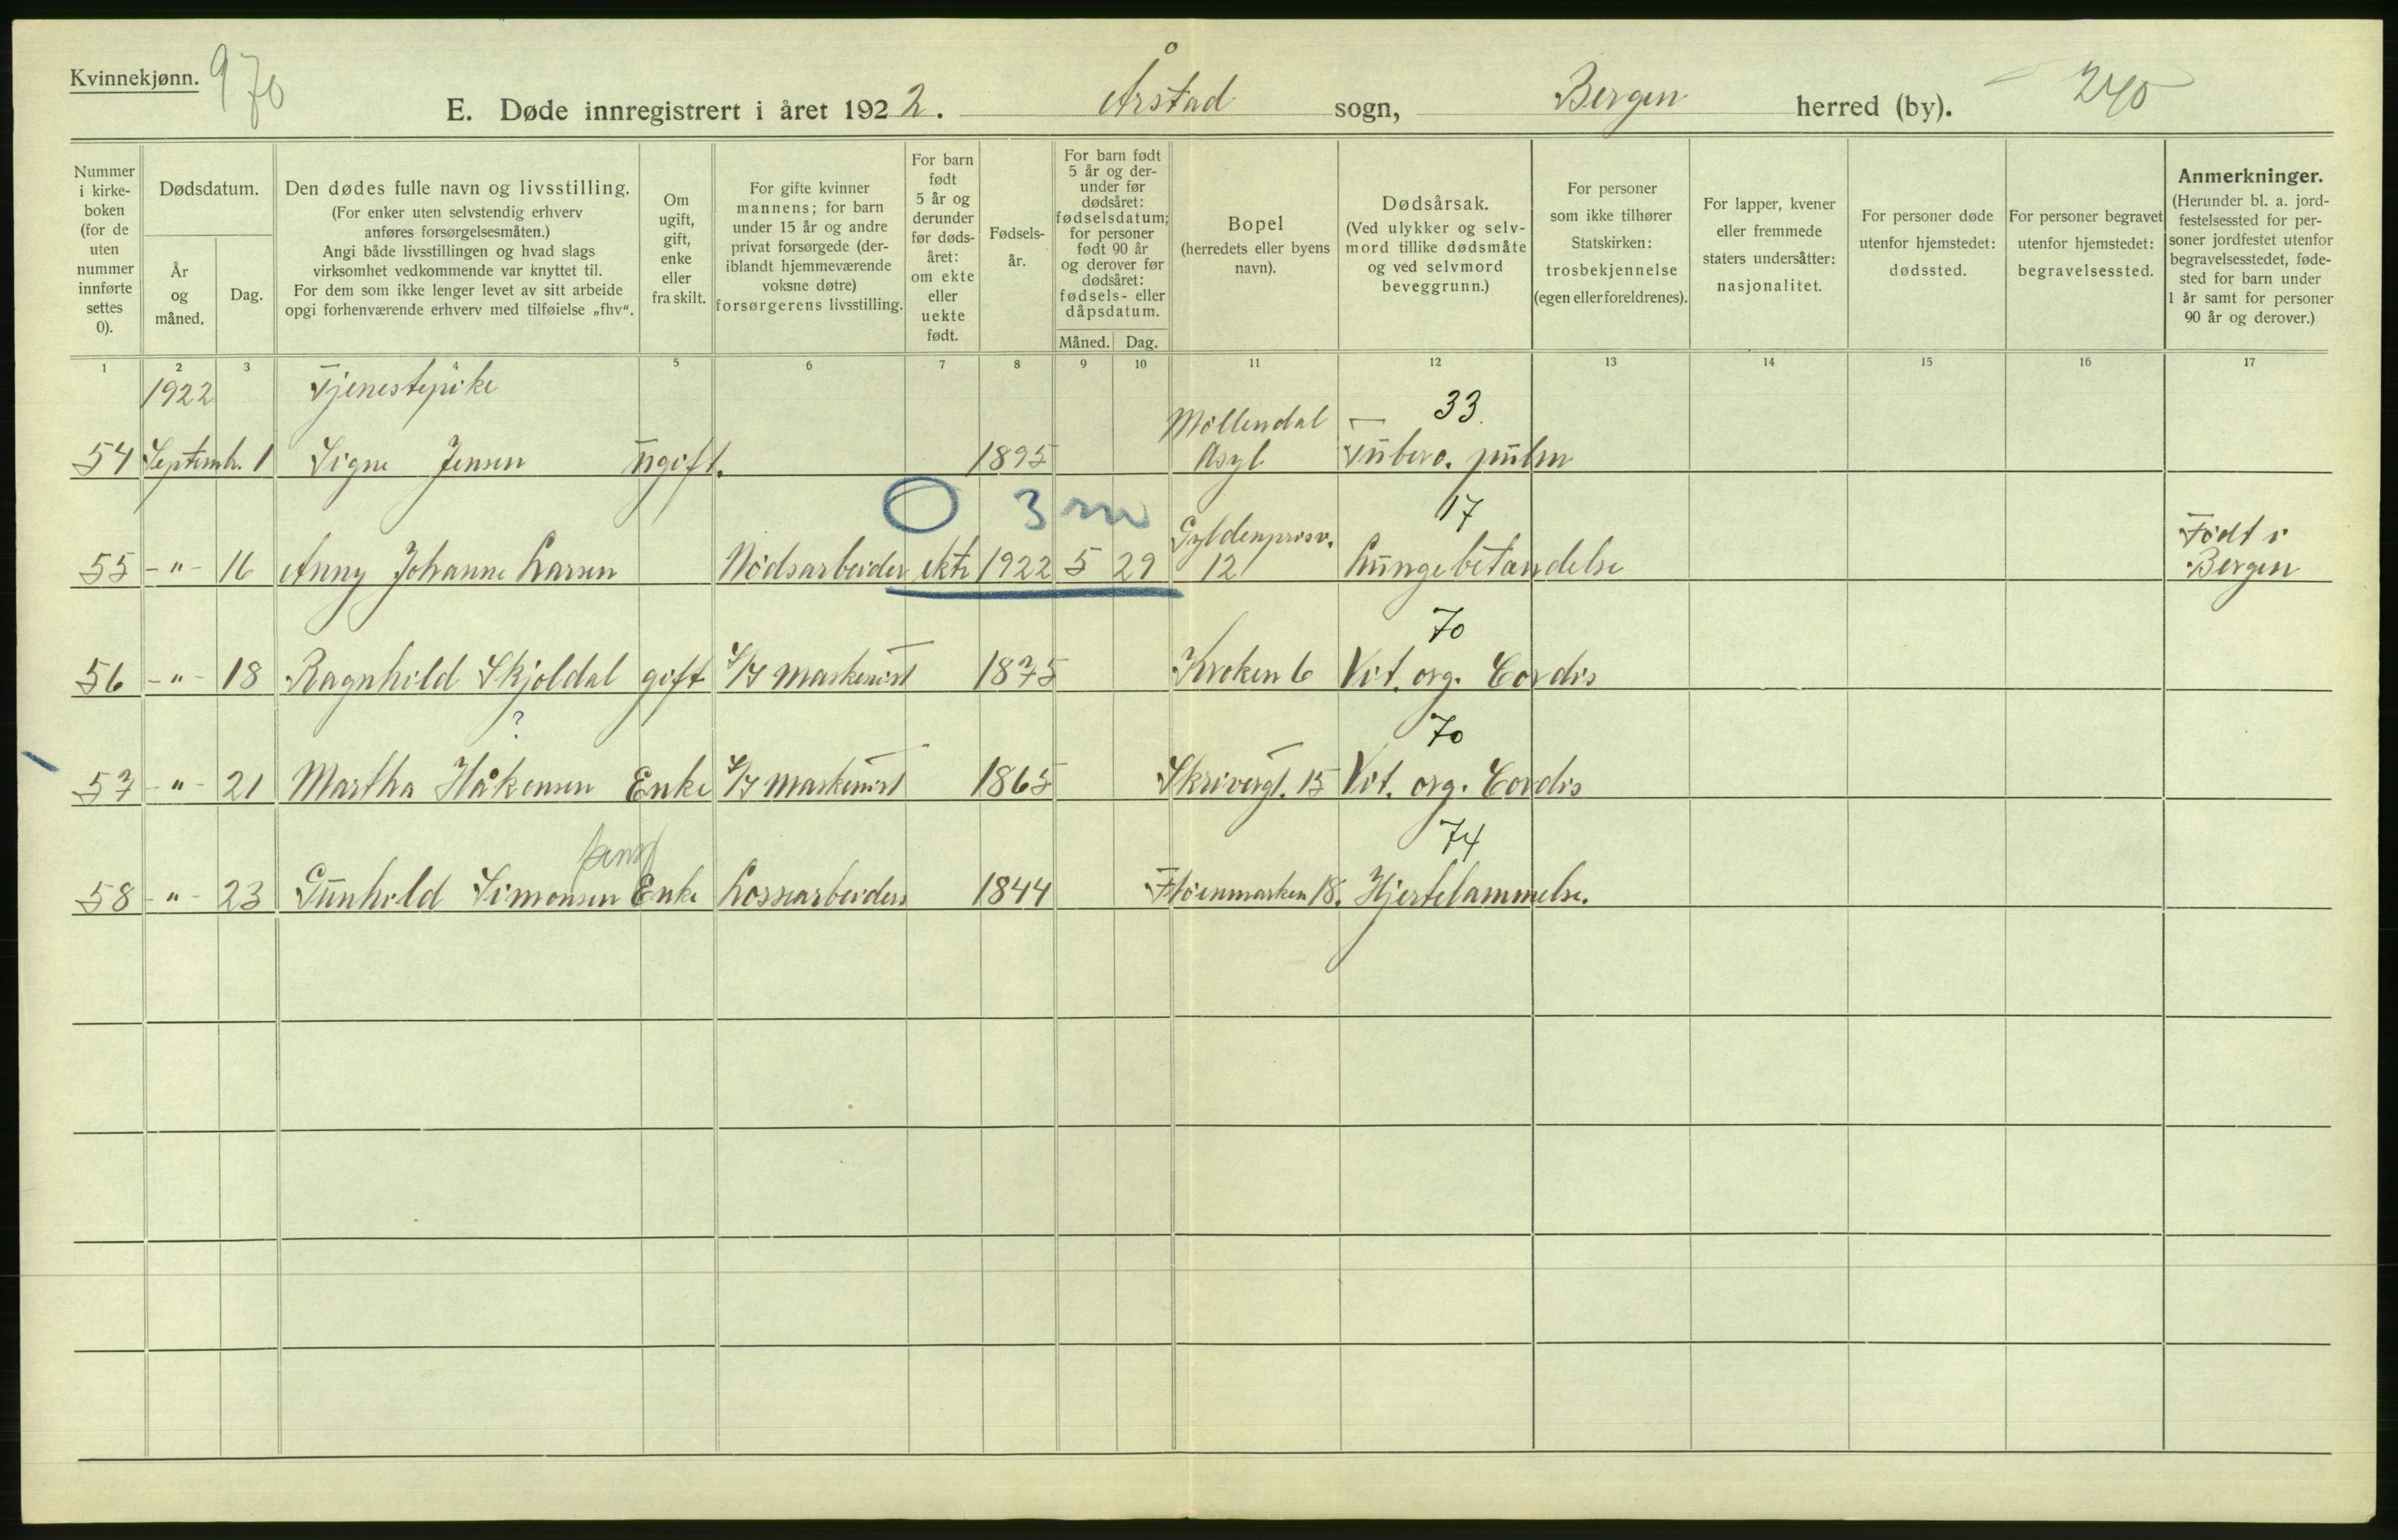 Kvinnekjønn.
970
E. Døde innregistrert i året 1922. Årstad sogn, Bergen herred (by). 240
Nummer i kirkeboken (for de uten nummer innførte settes 0).
Dødsdatum.
År og måned.
Dag.
Den dødes fulle navn og livsstilling.
(For enker uten selvstendig erhverv
anføres forsørgelsesmåten.)
Angi både livsstillingen og hvad slags
virksomhet vedkommende var knyttet til.
For dem som ikke lenger levet av sitt arbeide
opgi forhenværende erhverv med tilføielse „fhv“.
Om
ugift,
gift,
enke
eller
fraskilt.
For gifte kvinner
mannens; for barn
under 15 år og andre
privat forsørgede (der-
iblandt hjemmeværende
voksne døtre)
forsørgerens livsstilling.
For barn
født
5 år og
derunder
før døds-
året:
om ekte
eller
uekte
født.
Fødsels-
år.
For barn født
5 år og der-
under før
dødsåret:
fødselsdatum;
for personer
født 90 år
og derover før
dødsåret:
fødsels- eller
dåpsdatum.
Måned. Dag.
Bopel
(herredets eller byens
navn).
Dødsårsak.
(Ved ulykker og selv-
mord tillike dødsmåte
og ved selvmord
beveggrunn.)
For personer
som ikke tilhører
Statskirken:
trosbekjennelse
(egen eller foreldrenes).
For lapper, kvener
eller fremmede
staters undersåtter:
nasjonalitet.
For personer døde
utenfor hjemstedet:
dødssted.
For personer begravet
utenfor hjemstedet:
begravelsessted.
Anmerkninger.
(Herunder bl. a. jord-
festelsessted for per-
soner jordfestet utenfor
begravelsesstedet, føde-
sted for barn under
1 år samt for personer
90 år og derover.)
1 2 3 5 6 7 8 9 10 11 12 13 14 15 16 17
1922 Tjenestepike
Møllendal 33
54 Septemb. 1 Signe Jensen Ugift. 1895 Asyl Tuberc. pulm
0 3 m Gyldenprisv. 17 Født i
55 -"- 16 Anny Johanne Larsen Nødsarbeider ekte 1922 5 29 12 Lungebetændelse Bergen
70
56 -"- 18 Ragnhild Skjoldal gift S/S maskinist 1875 Kroken 6 Vit. org. Cordis
? 70
57 -"- 21 Martha Håkensen Enke S/S maskinist 1865 Skrivergt. 15 Vit. org. Cordis
74
58 -"- 23 Gunhild Simonsen Enke Lossearbeiders 1844 Fløenmarken 18. Hjertelammelse.